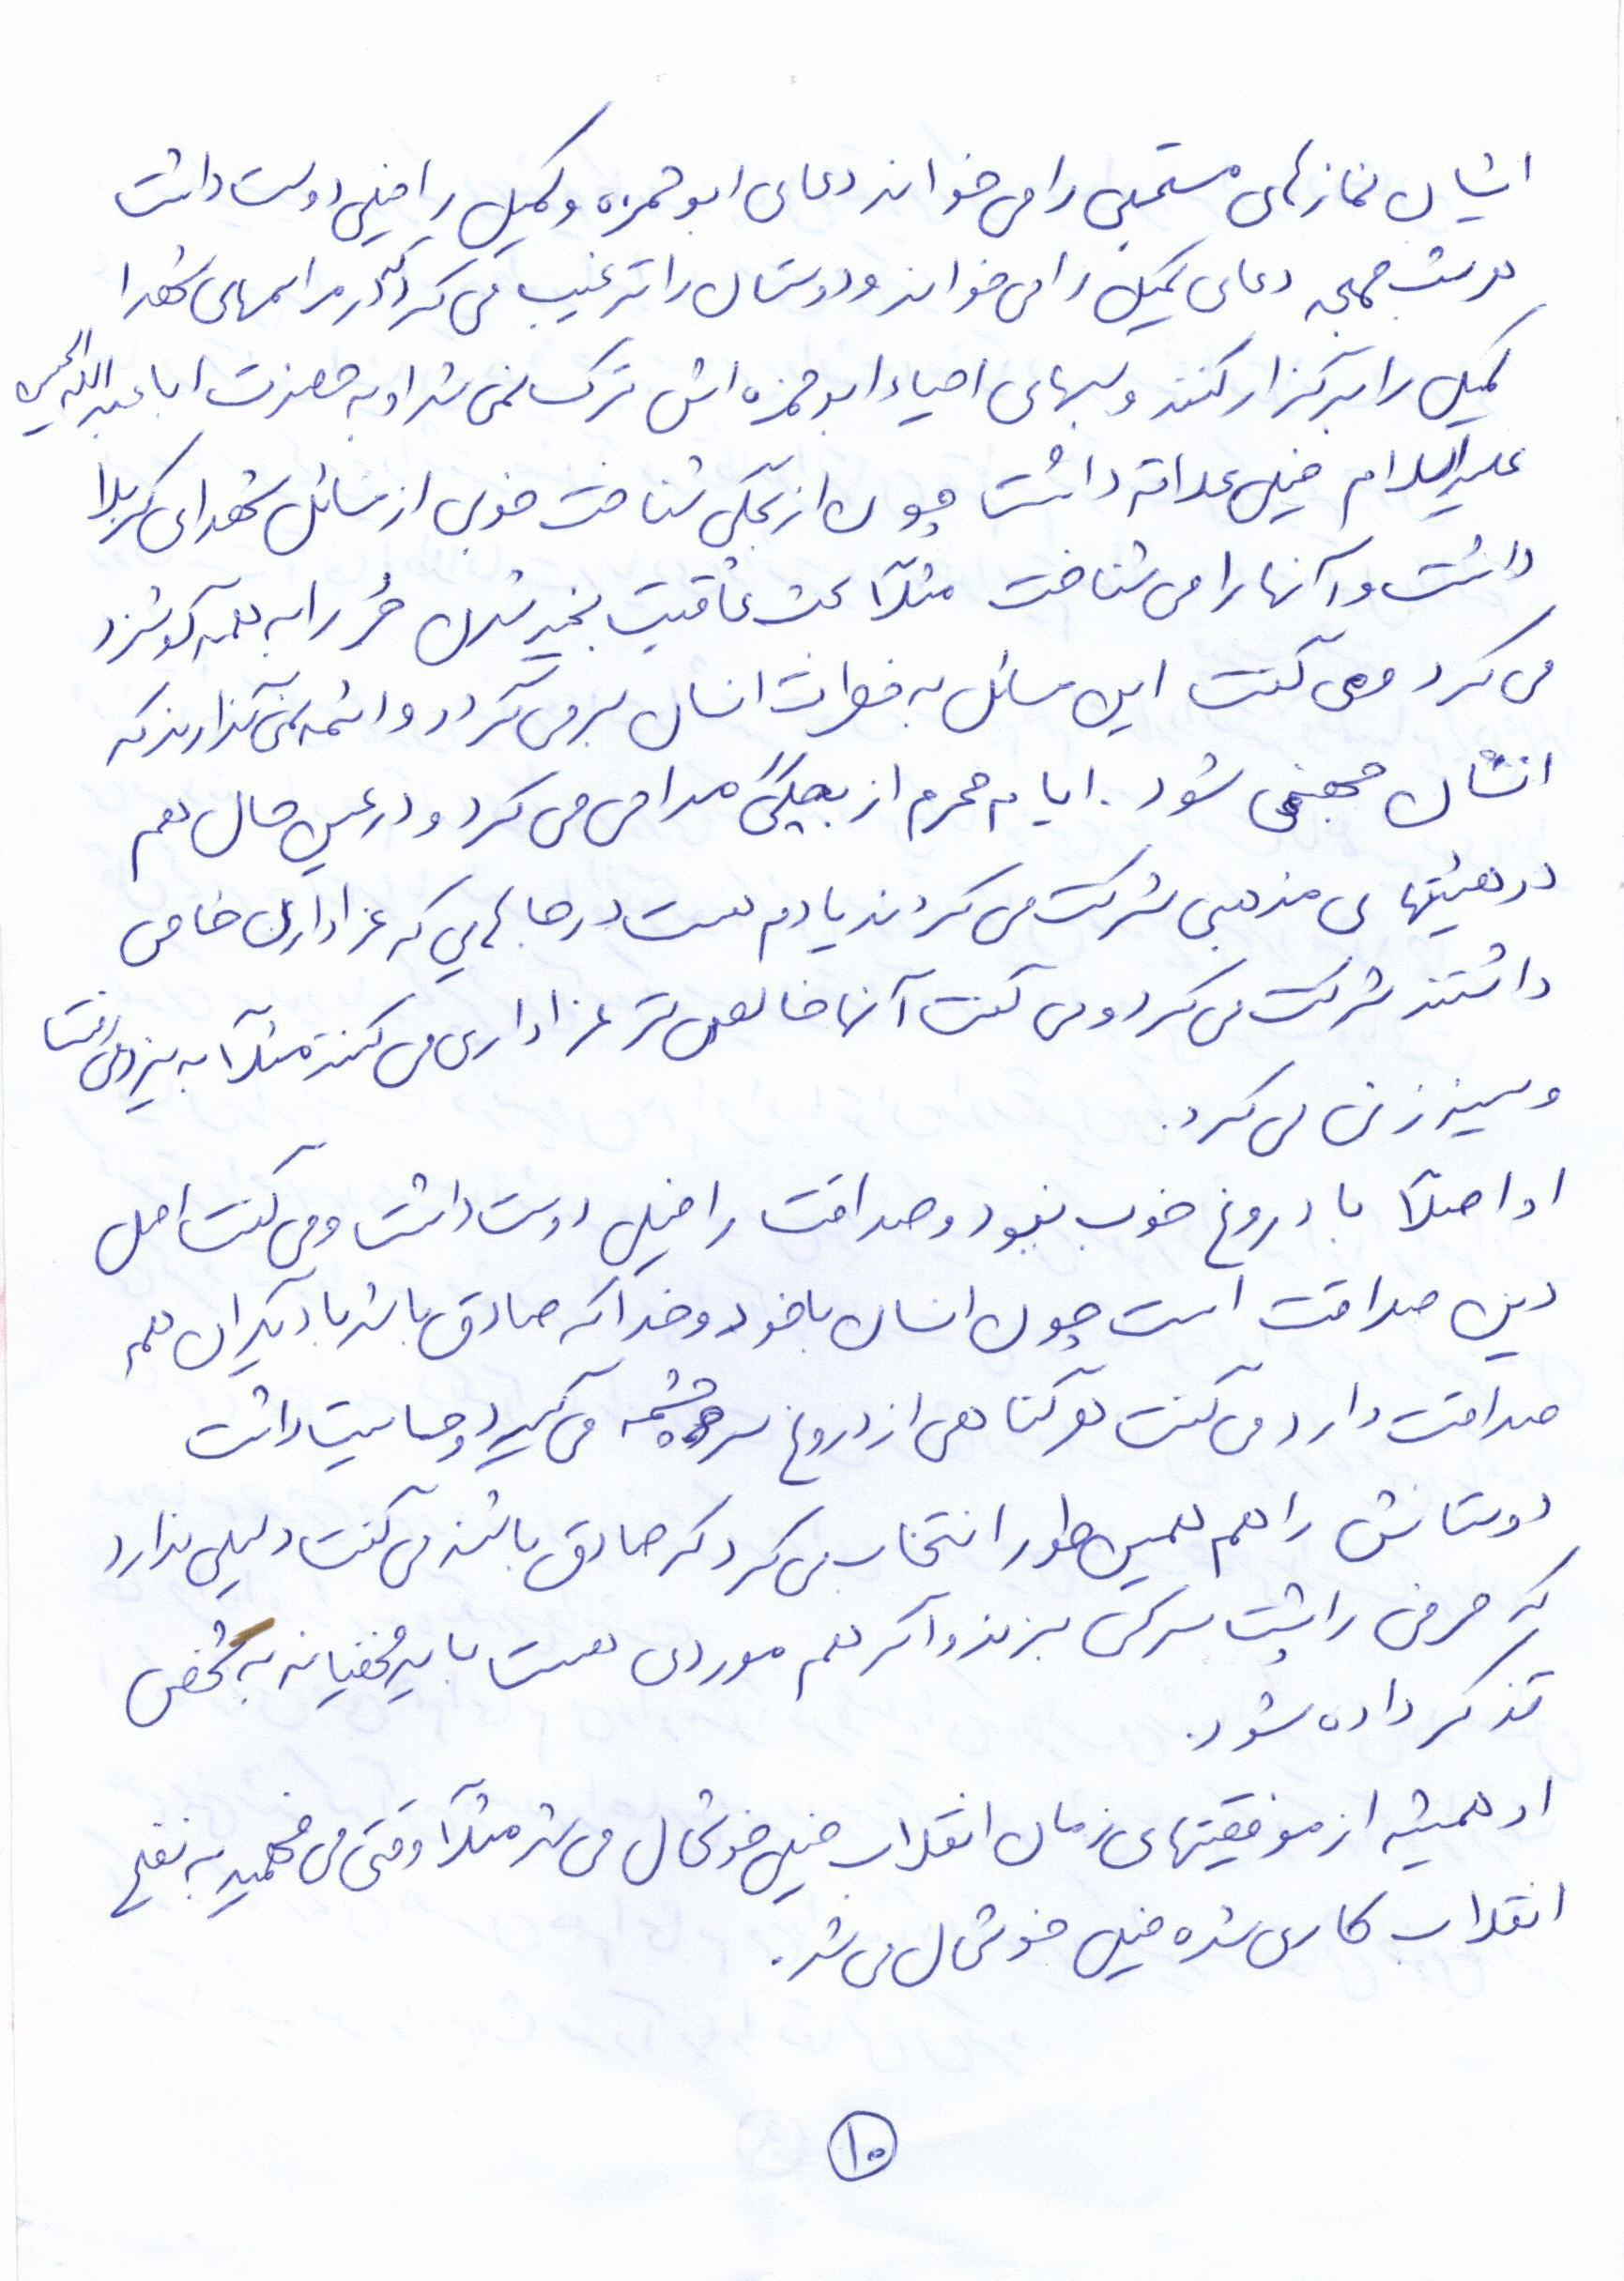 ایشان نمازهای مستحبی را می خواند دعای ابوحمزه و کمیل را خیلی دوست داشت
هر شب جمعه دعای کمیل را می خواند و دوستان را ترغیب می کرد که در مراسمهای شهدا
کمیل را برگزار کنند و شبهای احیاء ابوحمزه اش ترک نمی شد او به حضرت اباعبدالله الحسین
علیه السلام خیلی علاقه داشت چون از بچگی شناخت خوبی از مسائل شهدای کربلا
داشت و آنها را می شناخت مثلاً بحث عاقبت بخیر شدن حُر را به همه گوشزد
می کرد و می گفت این مسائل به فطرت انسان برمی گردد و ائمه نمی گذارند که
انسان جهنمی شود. ایام محرم از بچگی مداحی می کرد و در عین حال هم
در هیئتهای مذهبی شرکت می کردند یادم هست در جاهایی که عزاداری خاصی
داشتند شرکت می کرد و می گفت آنها خالص تر عزاداری می کنند مثلاً به یزد می رفت
و سینه زنی می کرد.
او اصلاً با دروغ خوب نبود و صداقت را خیلی دوست داشت و می گفت اصل
دین صداقت است چون انسان با خود و خدا که صادق باشد با دیگران هم
صداقت دارد می گفت هر گناهی از دروغ سرچشمه می گیرد و حساسیت داشت
دوستانش را هم همین طور انتخاب می کرد که صادق باشند می گفت دلیلی ندارد
که حرفی را پشت سر کسی بزند و اگر هم موردی هست باید مخفیانه به شخص
تذکر داده شود.
او همیشه از موفقیتهای زمان انقلاب خیلی خوشحال می شد مثلاً وقتی می فهمید به نفع
انقلاب کاری شده خیلی خوشحال می شد.
۱۰